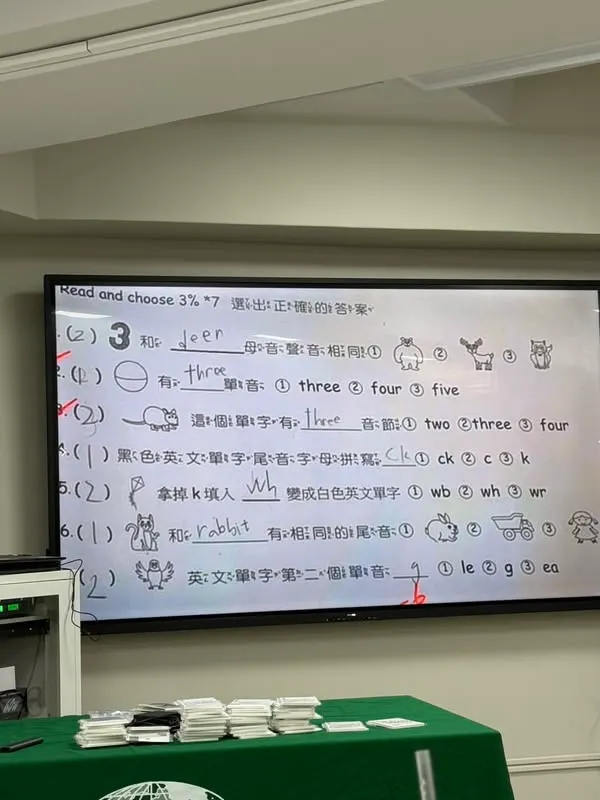 Read and choose 3% *7 選出正確的答案
.(2) 3 和 deer 母音聲音相同① ② ③
2.( ) 有 three 單音 ① three ② four ③ five
3.(2) 這個單字有 three 音節① two ②three ③ four
4.(1) 黑色英文單字尾音字母拼寫 ck ① ck ② c ③ k
5.(2) 拿掉 k 填入 wh 變成白色英文單字 ① wb ② wh ③ wr
6.(1) 和 rabbit 有相同的尾音① ② ③
(2) 英文單字第二個單音 g ① le ② g ③ ea
-6